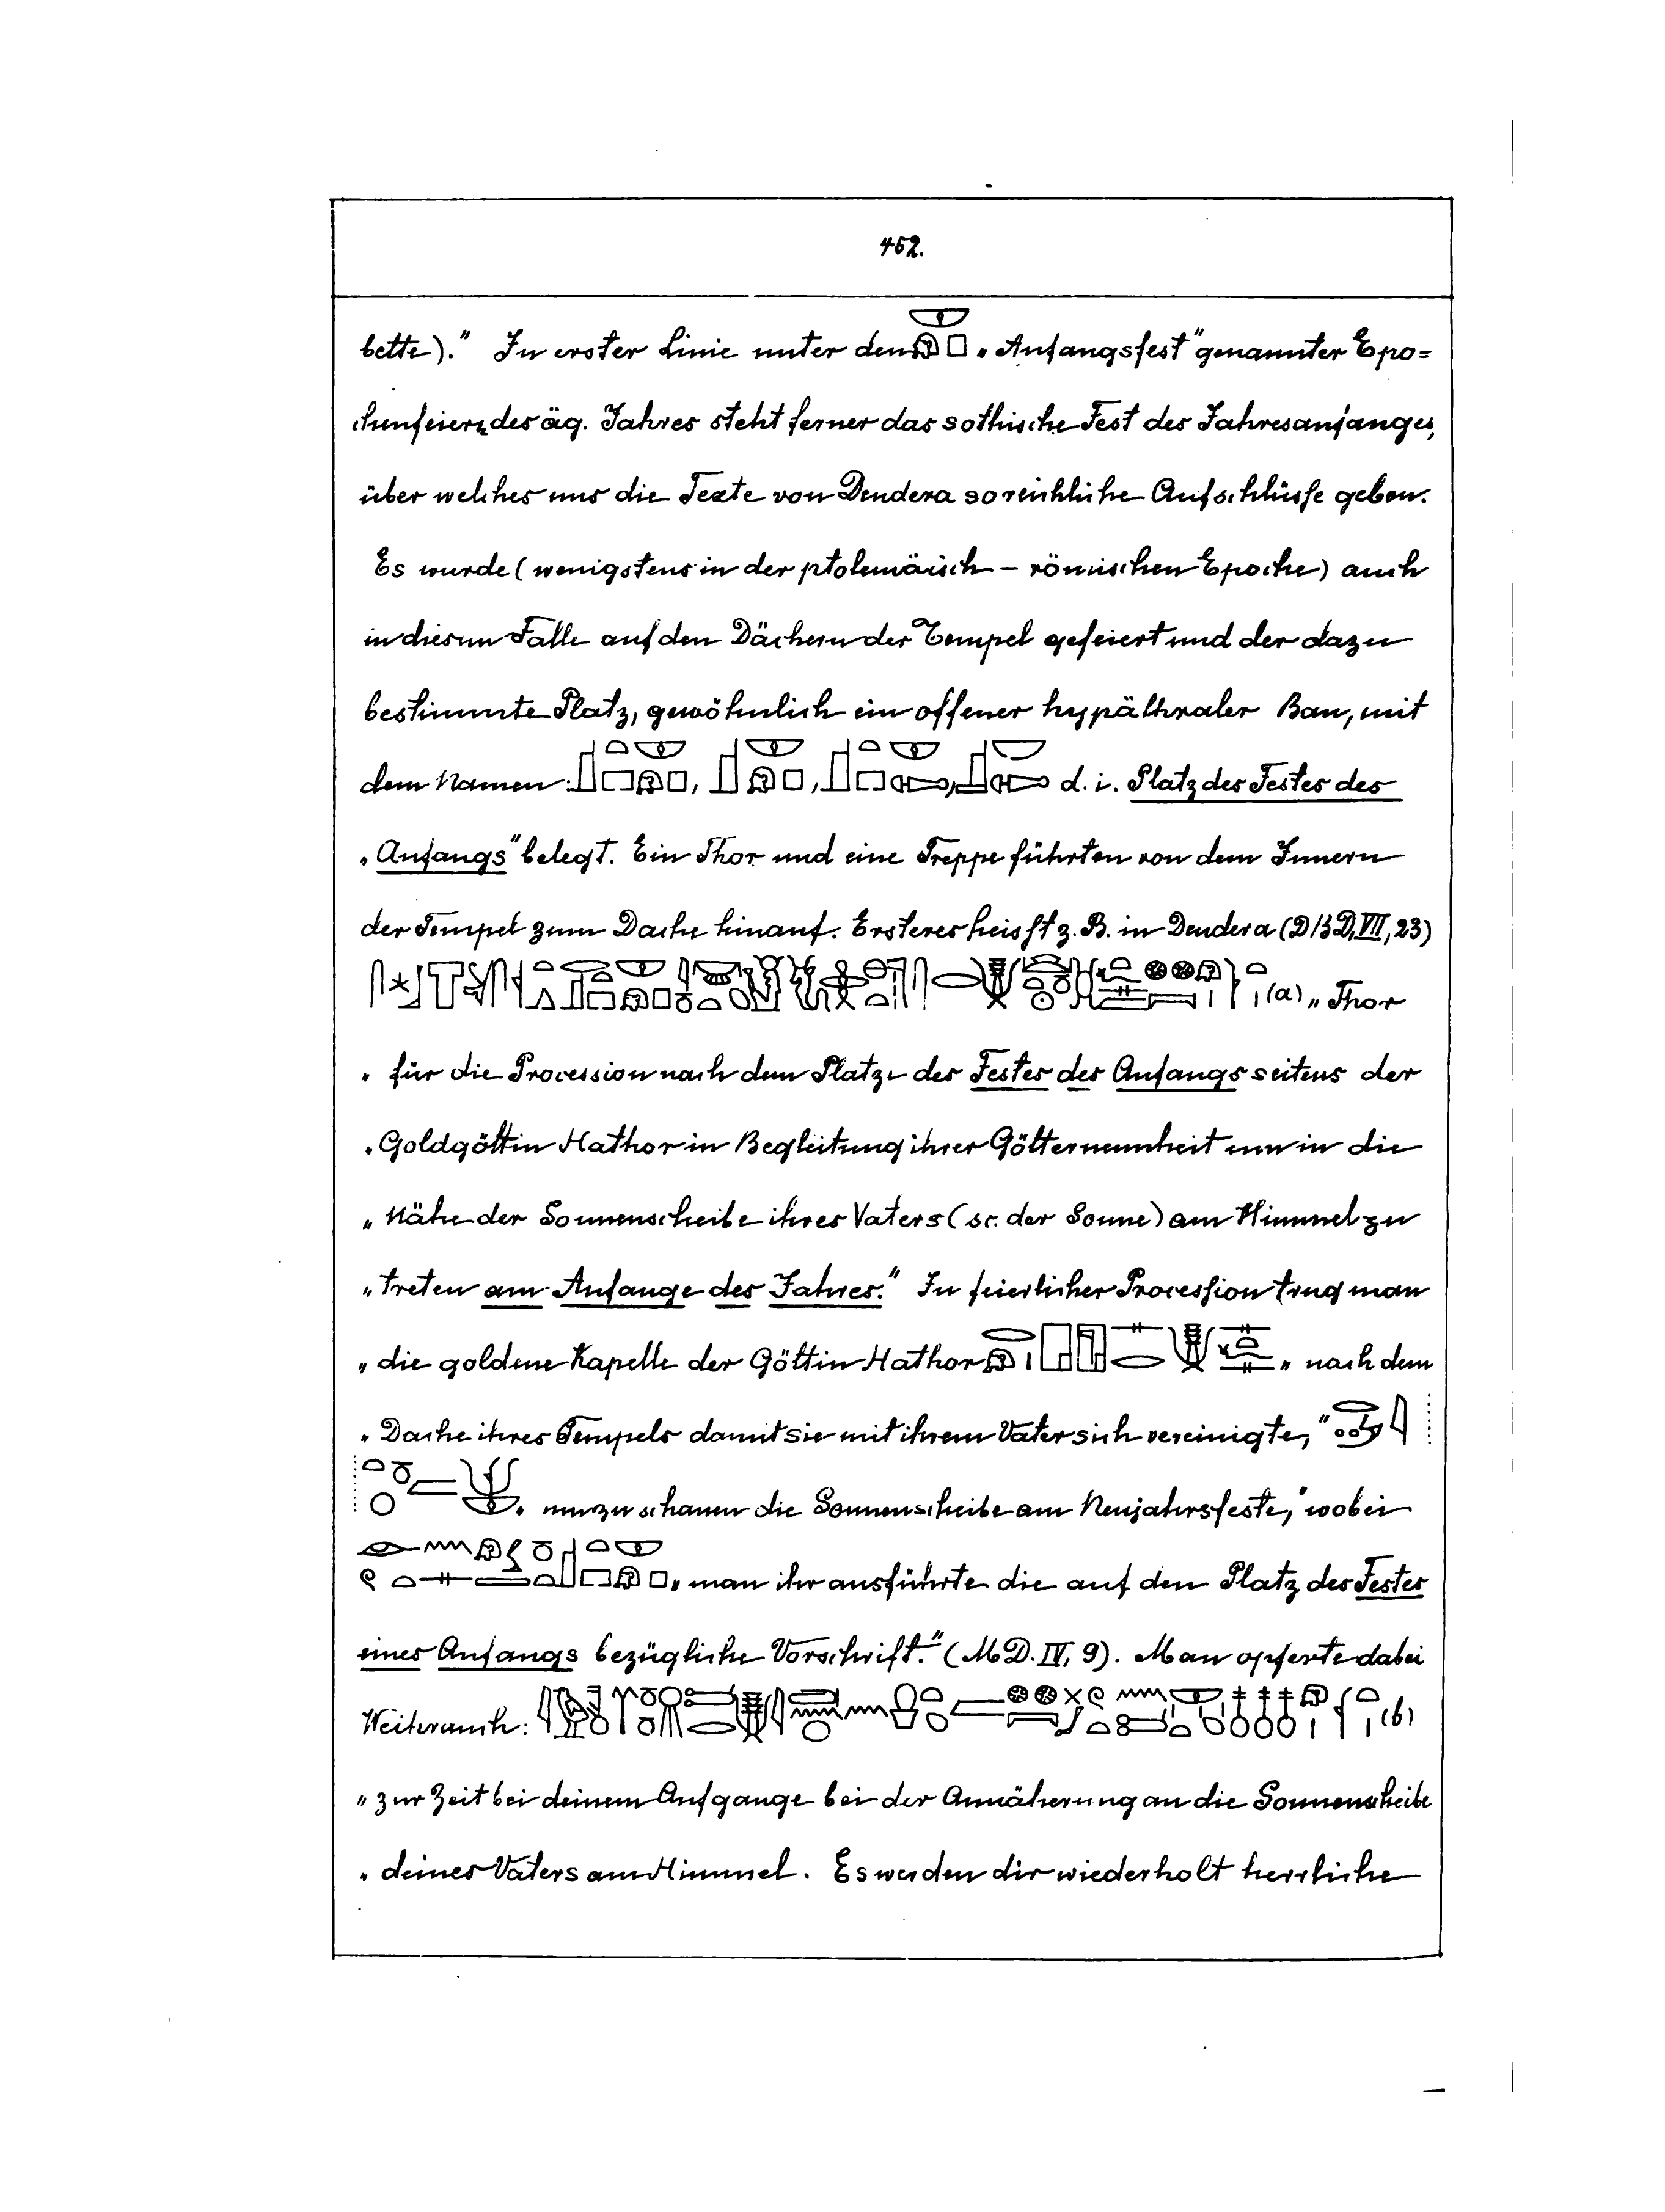 452.
bette)." In erster Linie unter den „Anfangsfest" genannter Epo=
chenfeiern des äg. Jahres steht ferner das sothische Fest des Jahresanfanges,
über welches uns die Texte von Dendera so reichliche Aufschlüsse geben.
Es wurde (wenigstens in der ptolemäisch – römischen Epoche) auch
in diesem Falle auf den Dächern der Tempel gefeiert und der dazu
bestimmte Platz, gewöhnlich ein offener hypäthraler Bau, mit
dem Namen: , , , d. i. Platz des Festes des
„Anfangs" belegt. Ein Thor und eine Treppe führten von dem Innern
der Tempel zum Dache hinauf. Ersteres heisst z. B. in Dendera (DBD, VII, 23)
(a) „Thor
„für die Procession nach dem Platze des Festes des Anfangs seitens der
„Goldgöttin Hathor in Begleitung ihrer Götterneunheit um in die
„Nähe der Sonnenscheibe ihres Vaters (sc. der Sonne) am Himmel zu
„treten am Anfange des Jahres." In feierlicher Procession trug man
„die goldene Kapelle der Göttin Hathor „nach dem
„Dache ihres Tempels damit sie mit ihrem Vater sich vereinigte,"
„um zu schauen die Sonnenscheibe am Neujahrsfeste," wobei
„man ihr ausführte die auf den Platz des Festes
eines Anfangs bezügliche Vorschrift." (MD. IV, 9). Man opferte dabei
Weihrauch: (b)
„zur Zeit bei deinem Aufgange bei der Annäherung an die Sonnenscheibe
„deines Vaters am Himmel. Es werden dir wiederholt herrliche